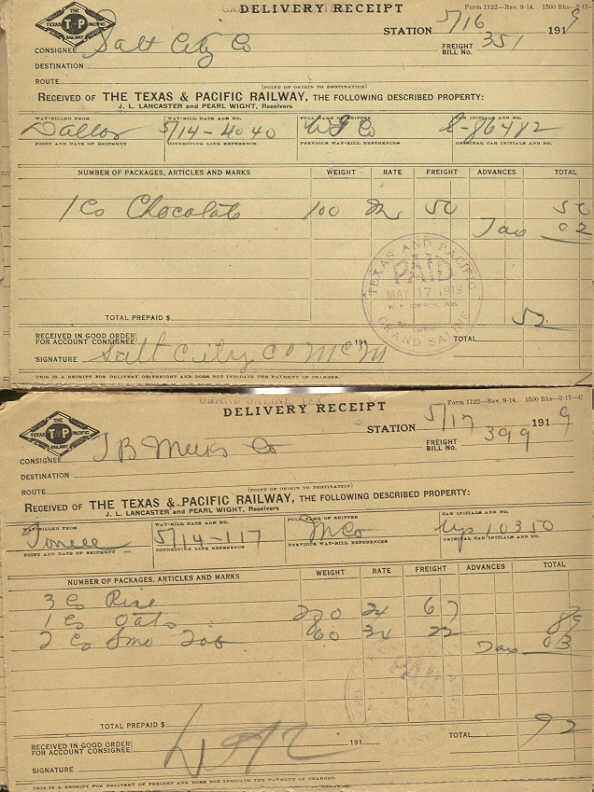 DELIVERY RECEIPT
Form 1122—Rev. 9-14. 1500 Bks—2-17—
STATION 5/16 1919
THE TEXAS T P PACIFIC RAILWAY
CONSIGNEE Salt City Co
FREIGHT BILL No. 351
DESTINATION
ROUTE
(POINT OF ORIGIN TO DESTINATION)
RECEIVED OF THE TEXAS & PACIFIC RAILWAY, THE FOLLOWING DESCRIBED PROPERTY:
J. L. LANCASTER and PEARL WIGHT, Receivers
WAY-BILLED FROM WAY-BILL DATE AND NO. FULL NAME OF SHIPPER CAR INITIALS AND NO.
Dallas 5/14-4040
POINT AND DATE OF SHIPMENT CONNECTING LINE REFERENCE PREVIOUS WAY-BILL REFERENCES ORIGINAL CAR INITIALS AND NO.
NUMBER OF PACKAGES, ARTICLES AND MARKS WEIGHT RATE FREIGHT ADVANCES TOTAL
1 Cs Chocolate 100 50 50
Tax 02
TEXAS AND PACIFIC
PAID
MAY 17 1919
GRAND SALINE
TOTAL PREPAID $
52
RECEIVED IN GOOD ORDER FOR ACCOUNT CONSIGNEE: 191 TOTAL
SIGNATURE Salt City Co McM
THIS IS A RECEIPT FOR DELIVERY OF FREIGHT AND DOES NOT INDICATE THE PAYMENT OF CHARGES.
DELIVERY RECEIPT
Form 1122—Rev. 9-14. 1500 Bks—2-17—
STATION 5/17 1919
THE TEXAS T P PACIFIC RAILWAY
CONSIGNEE T B Meeks Co
FREIGHT BILL No. 399
DESTINATION
ROUTE
(POINT OF ORIGIN TO DESTINATION)
RECEIVED OF THE TEXAS & PACIFIC RAILWAY, THE FOLLOWING DESCRIBED PROPERTY:
J. L. LANCASTER and PEARL WIGHT, Receivers
WAY-BILLED FROM WAY-BILL DATE AND NO. FULL NAME OF SHIPPER CAR INITIALS AND NO.
5/14-117 M Co 10310
POINT AND DATE OF SHIPMENT CONNECTING LINE REFERENCE PREVIOUS WAY-BILL REFERENCES ORIGINAL CAR INITIALS AND NO.
NUMBER OF PACKAGES, ARTICLES AND MARKS WEIGHT RATE FREIGHT ADVANCES TOTAL
3 Cs Rice
1 Cs Oats 24 67 89
2 Cs Smo Tob 60 34 22
Tax 03
TOTAL PREPAID $
92
RECEIVED IN GOOD ORDER FOR ACCOUNT CONSIGNEE 191 TOTAL
SIGNATURE
THIS IS A RECEIPT FOR DELIVERY OF FREIGHT AND DOES NOT INDICATE THE PAYMENT OF CHARGES.